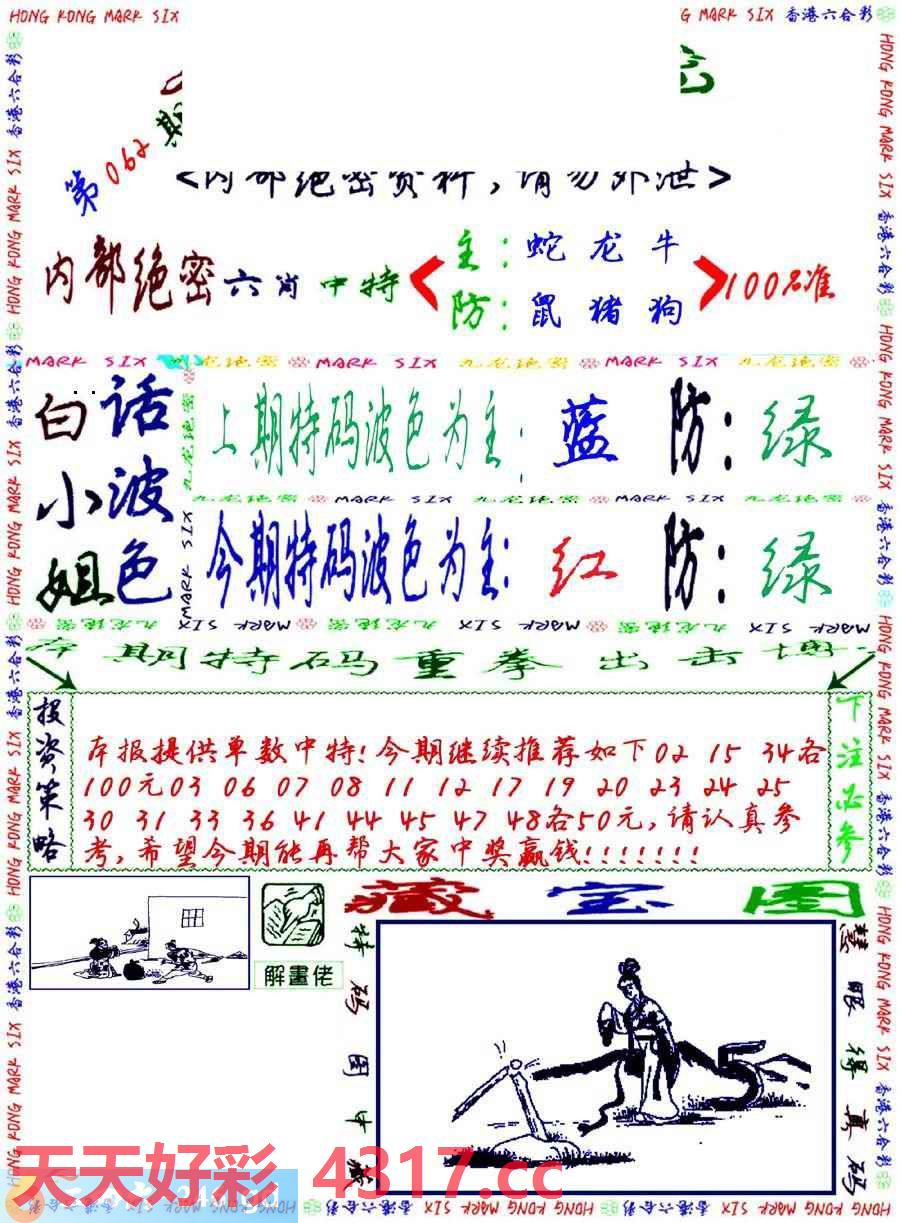 HONG KONG MARK SIX
G MARK SIX 香港六合彩
第062期
<内部绝密资料，请勿外泄>
内部绝密六肖中特
主：蛇龙牛
防：鼠猪狗
100%准
MARK SIX 九龙绝密 MARK SIX 九龙绝密 MARK SIX 九龙绝密
白话
小波
姐色
上期特码波色为主：蓝 防：绿
九龙绝密 MARK SIX 九龙绝密 MARK SIX 九龙绝密
今期特码波色为主：红 防：绿
本期特码重拳出击
投资策略
本报提供单数中特!今期继续推荐如下02 15 34各
100元03 06 07 08 11 12 17 19 20 23 24 25
30 31 33 36 41 44 45 47 48各50元,请认真参
考,希望今期能再帮大家中奖赢钱!!!!!!!
下注必参
解畫佬
藏宝图
特码图中藏
慧眼得真码
天天好彩 4317.cc